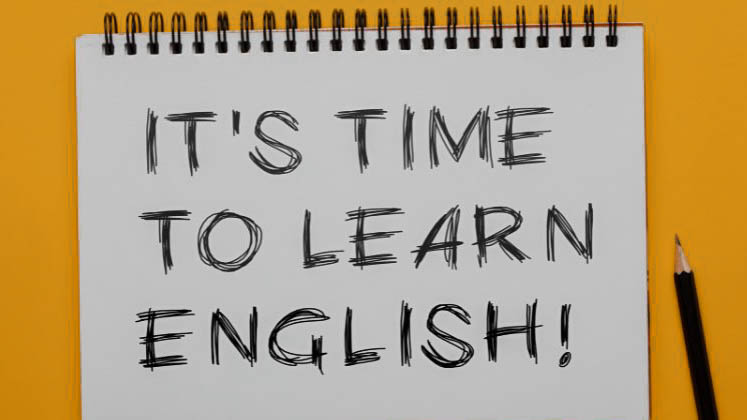 IT'S TIME
TO LEARN
ENGLISH!